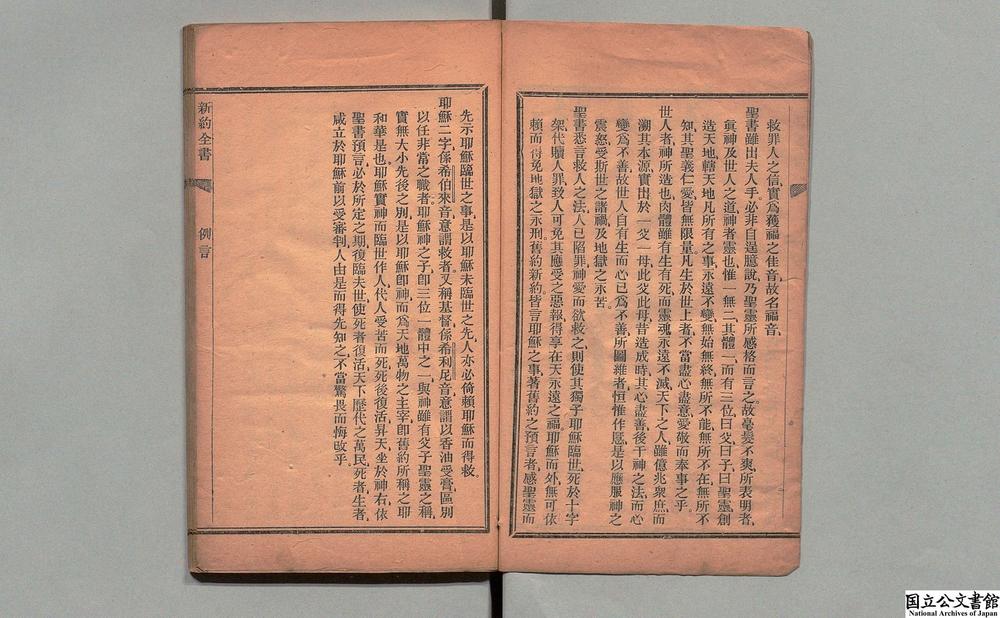 救罪人之信實爲獲福之佳音故名福音、
聖書雖出夫人手必非自逞臆說乃聖靈所感格而言之故毫髮不爽所表明者、
眞神及世人之道神者靈也惟一無二其體一而有三位曰父曰子曰聖靈創
造天地轄天地凡所有之事永遠不變無始無終無所不能無所不在無所不
知其聖義仁愛皆無限量凡生於世上者不當盡心盡意愛敬而奉事之乎、
世人者神所造也肉體雖有生有死而靈魂永遠不滅天下之人雖億兆衆庶而
溯其本源實出於一父一母此父此母昔造成時其心盡善後干神之法而心
變爲不善故世人自有生而心已爲不善所圖維者恒惟作慝是以應服神之
震怒受斯世之諸禍及地獄之永苦、
聖書悉言救人之法人已陷罪神愛而欲救之則使其獨子耶穌臨世死於十字
架代贖人罪致人可免其應受之惡報得享在天永遠之福耶穌而外無可依
賴而得免地獄之永刑舊約新約皆言耶穌之事著舊約之預言者感聖靈而
先示耶穌臨世之事是以耶穌未臨世之先人亦必倚賴耶穌而得救、
耶穌二字係希伯來音意謂救者又稱基督係希利尼音意謂以香油受膏區別
以任非常之職者耶穌神之子卽三位一體中之一與神雖有父子聖靈之稱、
實無大小先後之別是以耶穌卽神而爲天地萬物之主宰卽舊約所稱之耶
和華是也耶穌實神而臨世作人代人受苦而死死後復活昇天坐於神右依
聖書預言必於所定之期復臨夫世使死者復活天下歷代之萬民死者生者、
咸立於耶穌前以受審判人由是而得先知之不當驚畏而悔改乎、
新約全書 例言
国立公文書館
National Archives of Japan